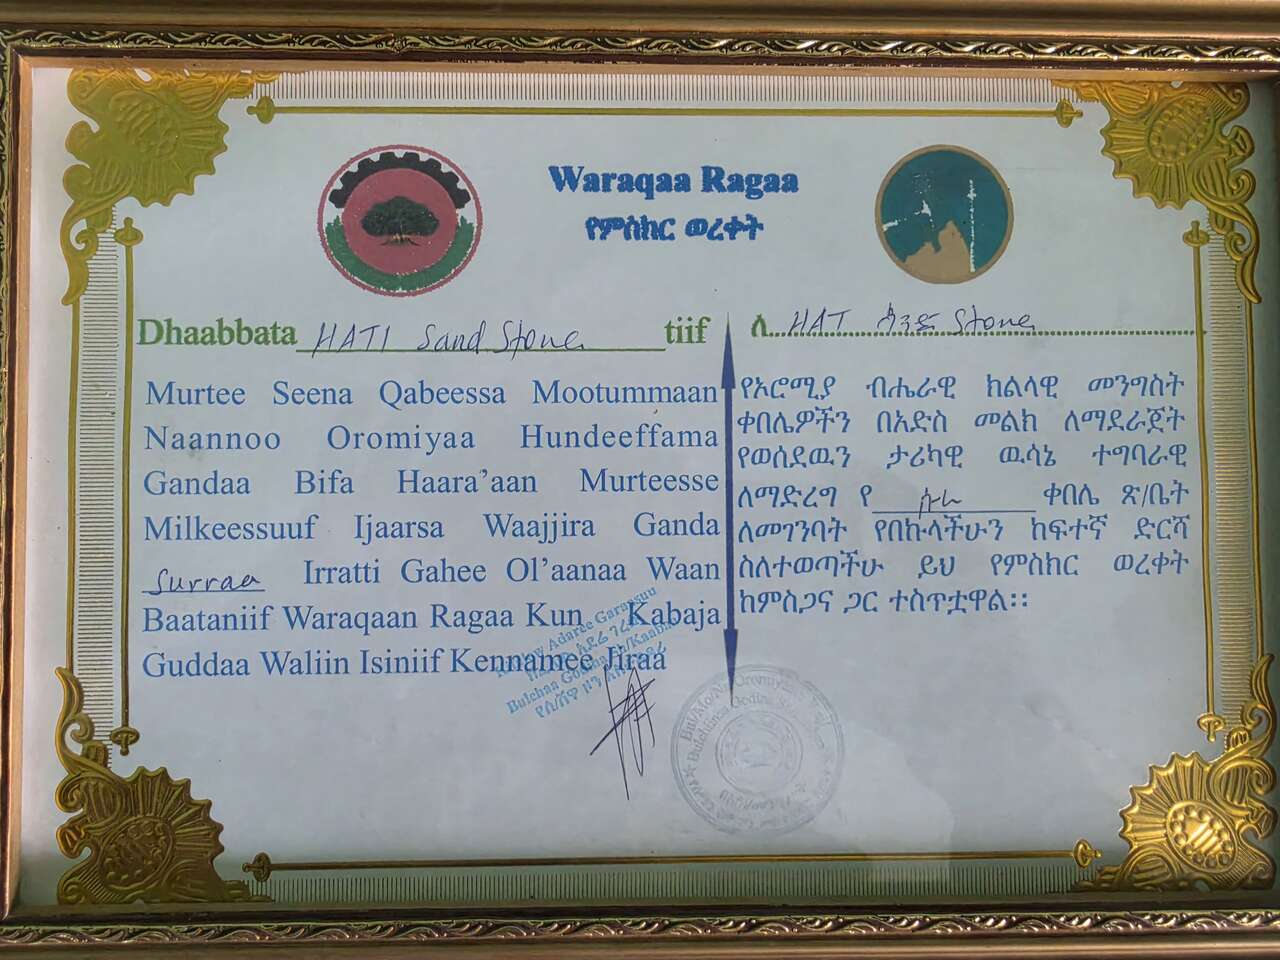 Waraqaa Ragaa
የምስክር ወረቀት
Dhaabbata HATI Sand Stone tiif
Murtee Seena Qabeessa Mootummaan
Naannoo Oromiyaa Hundeeffama
Gandaa Bifa Haara’aan Murteesse
Milkeessuuf Ijaarsa Waajjira Ganda
Surraa Irratti Gahee Ol’aanaa Waan
Baataniif Waraqaan Ragaa Kun Kabaja
Guddaa Waliin Isiniif Kennamee Jiraa
ለ HAT ሳንድ Stone
የኦሮሚያ ብሔራዊ ክልላዊ መንግስት
ቀበሌዎችን በአድስ መልክ ለማደራጀት
የወሰደዉን ታሪካዊ ዉሳኔ ተግባራዊ
ለማድረግ የ ሱራ ቀበሌ ጽ/ቤት
ለመገንባት የበኩላችሁን ከፍተኛ ድርሻ
ስለተወጣችሁ ይህ የምስክር ወረቀት
ከምስጋና ጋር ተስጥቷዋል፡፡
Adaree Garasuu
Bulchaa